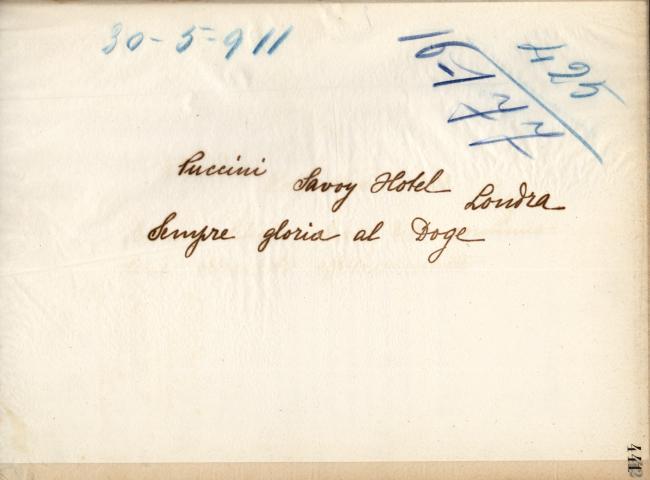 30-5-911
425
16-177
Puccini Savoy Hotel Londra
Sempre gloria al Doge